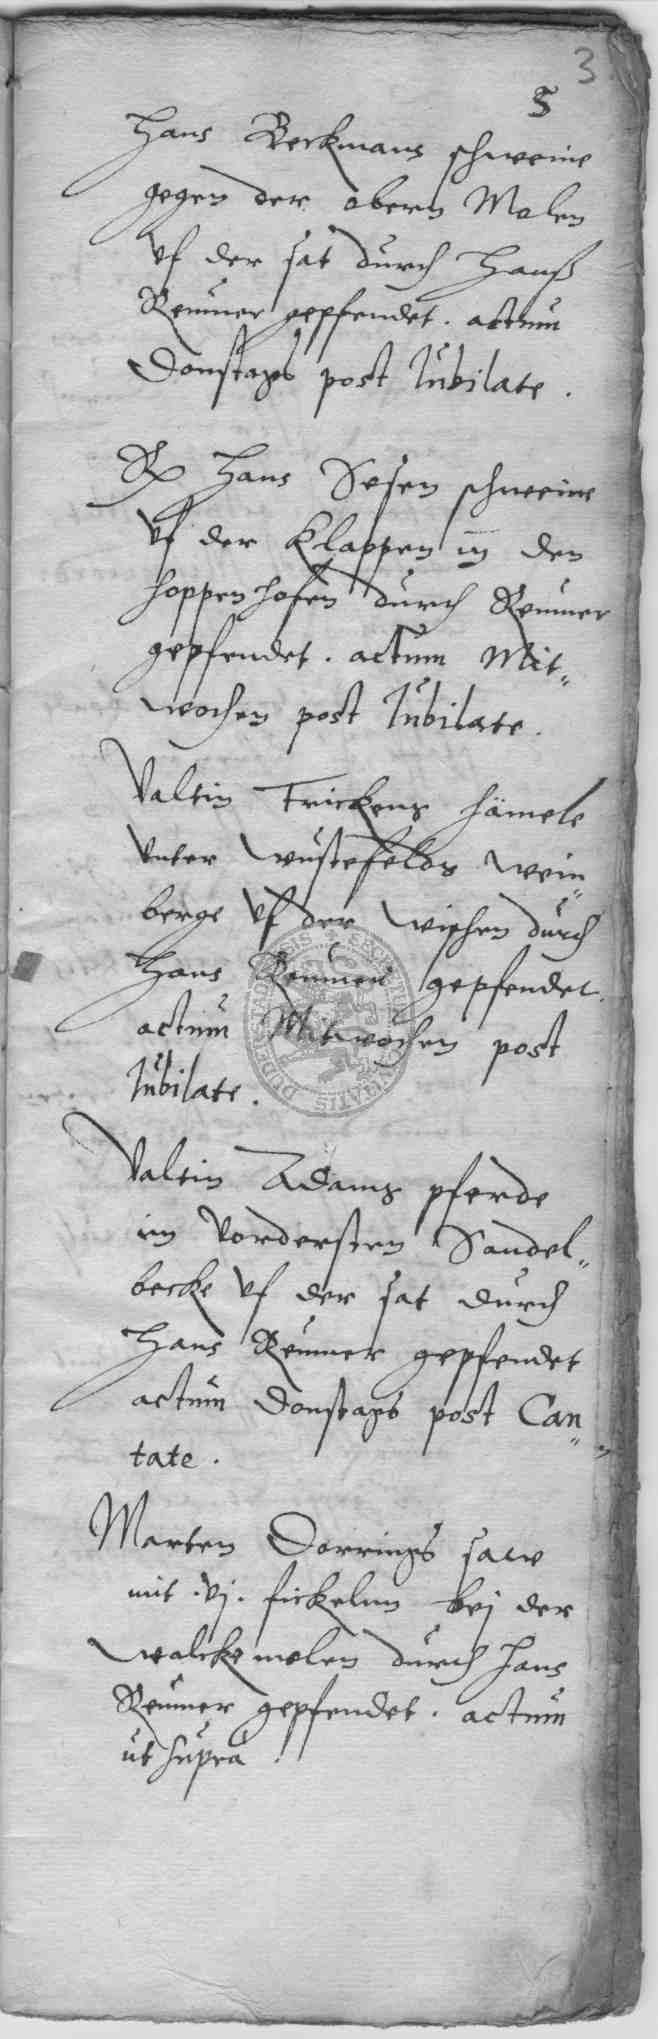 3
3
Hans Beckmans schweine
gegen der obern Molen
vf der sat durch Hanß
Renner gepfendet. actum
Donstags post Jubilate.
Hans Sesen schweine
vf der Klappen in den
hoppenhofen durch Renner
gepfendet. actum Mit„
wochen post Jubilate.
Valtin Trickens hämele
vnter Wustefelds wein„
berge vf der wischen durch
Hans Renner gepfendet.
actum Mitwochen post
Jubilate.
Valtin Adams pferde
im vordersten Sandel„
becke vf der sat durch
Hans Renner gepfendet
actum Donstags post Can„
tate.
Marten Dorrings saw
mit .vj. fickelnn bej der
walckemolen durch Hans
Renner gepfendet. actum
ut supra